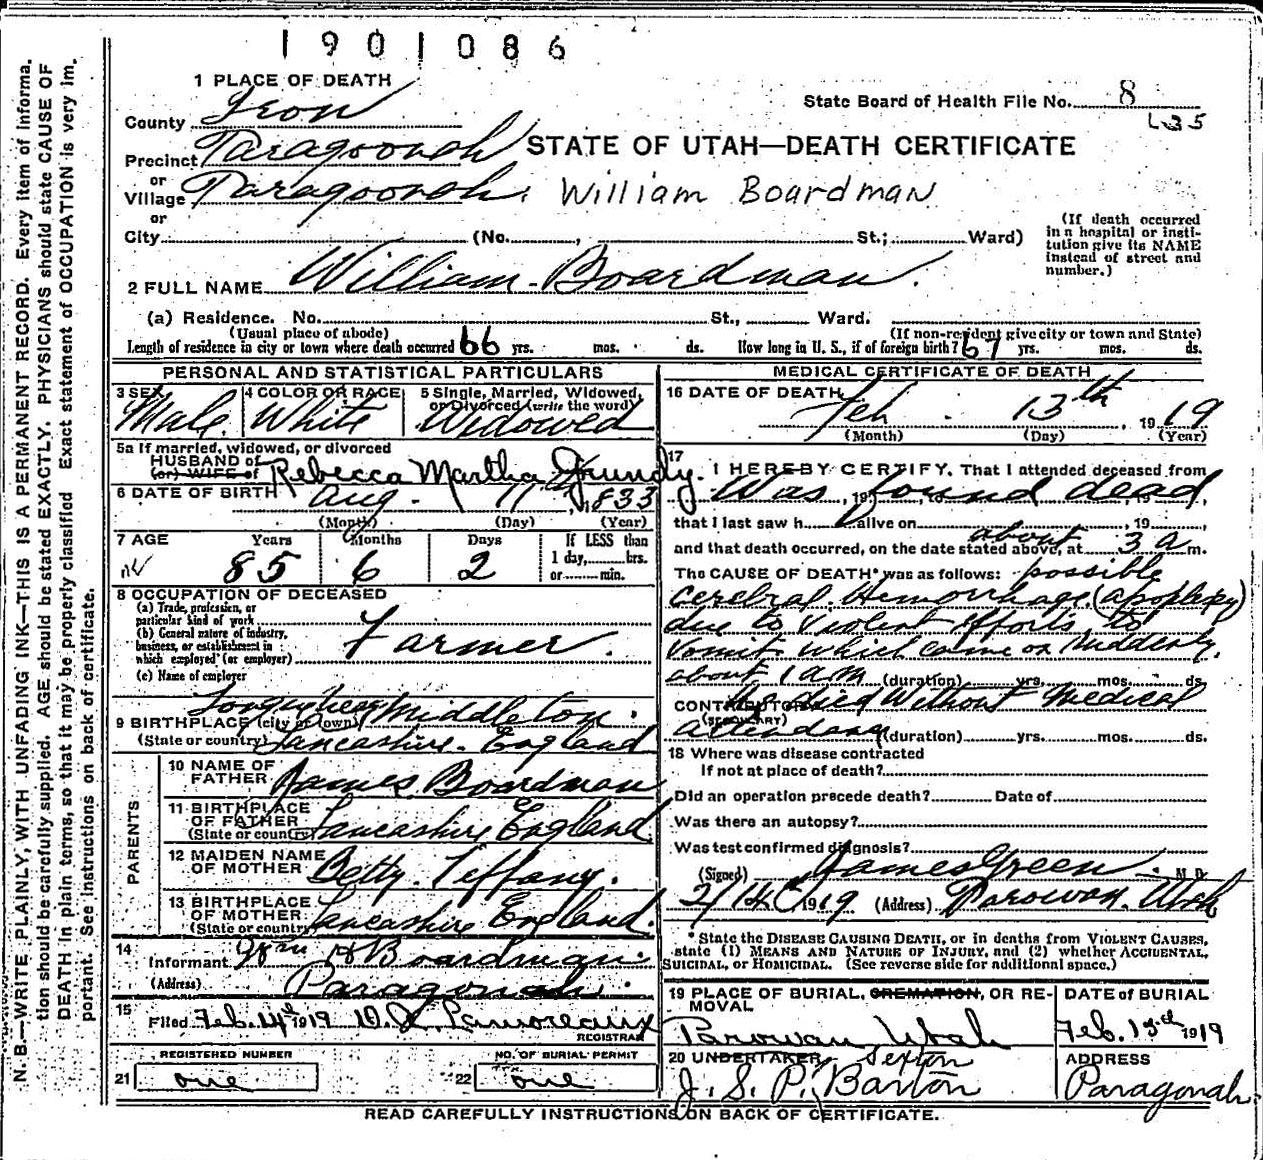 1901086
1 PLACE OF DEATH
State Board of Health File No. 8
County Iron
Precinct Paragoonah STATE OF UTAH—DEATH CERTIFICATE
or
Village Paragoonah. William Boardman
or
City (No. , St.; Ward)
(If death occurred in a hospital or institution give its NAME instead of street and number.)
2 FULL NAME William Boardman.
(a) Residence. No. St., Ward.
(Usual place of abode) (If non-resident give city or town and State)
Length of residence in city or town where death occurred 66 yrs. mos. ds. How long in U. S., if of foreign birth? 67 yrs. mos. ds.
PERSONAL AND STATISTICAL PARTICULARS
3 SEX Male. 4 COLOR OR RACE White 5 Single, Married, Widowed, or Divorced (write the word) Widowed
5a If married, widowed, or divorced
HUSBAND of
(or) WIFE of Rebecca Martha Grundy.
6 DATE OF BIRTH Aug. 11th, 1833
(Month) (Day) (Year)
7 AGE Years Months Days If LESS than
1 day, hrs.
or min.
85 6 2
8 OCCUPATION OF DECEASED
(a) Trade, profession, or particular kind of work
(b) General nature of industry, business, or establishment in which employed (or employer)
Farmer.
(c) Name of employer
9 BIRTHPLACE (city or town) Middleton.
(State or country) Lancashire. England
PARENTS
10 NAME OF FATHER James Boardman
11 BIRTHPLACE OF FATHER (State or country) Lancashire England
12 MAIDEN NAME OF MOTHER Betty Teffany.
13 BIRTHPLACE OF MOTHER (State or country) Lancashire England.
14
Informant Wm H Boardman.
(Address) Paragonah.
15
Filed Feb. 14th 1919 Lamoreaux
REGISTRAR
REGISTERED NUMBER NO. OF BURIAL PERMIT
21 one 22 one
MEDICAL CERTIFICATE OF DEATH
16 DATE OF DEATH Feb. 13th, 1919
(Month) (Day) (Year)
17
I HEREBY CERTIFY, That I attended deceased from
Was , 19 found dead,
that I last saw h alive on , 19 ,
and that death occurred, on the date stated above, at about 3 a m.
The CAUSE OF DEATH* was as follows: possible
cerebral Hemorrhage. (apoplexy)
due to violent efforts to
vomit which came on suddenly,
about 1 am (duration) yrs. mos. ds.
CONTRIBUTORY He died Without Medical
(SECONDARY)
attendance (duration) yrs. mos. ds.
18 Where was disease contracted
If not at place of death?
Did an operation precede death? Date of
Was there an autopsy?
Was test confirmed diagnosis?
(Signed) James Green, M. D.
2/14 1919 (Address) Parowan. Utah
* State the DISEASE CAUSING DEATH, or in deaths from VIOLENT CAUSES,
state (1) MEANS AND NATURE OF INJURY, and (2) whether ACCIDENTAL,
SUICIDAL, or HOMICIDAL. (See reverse side for additional space.)
19 PLACE OF BURIAL, CREMATION, OR REMOVAL DATE of BURIAL
Parowan, Utah Feb. 15th 1919
20 UNDERTAKER Sexton ADDRESS
J. S. P. Barton Paragonah.
READ CAREFULLY INSTRUCTIONS ON BACK OF CERTIFICATE.
N. B.—WRITE PLAINLY, WITH UNFADING INK—THIS IS A PERMANENT RECORD. Every item of informa-
tion should be carefully supplied. AGE should be stated EXACTLY. PHYSICIANS should state CAUSE OF
DEATH in plain terms, so that it may be properly classified. Exact statement of OCCUPATION is very im-
portant. See instructions on back of certificate.